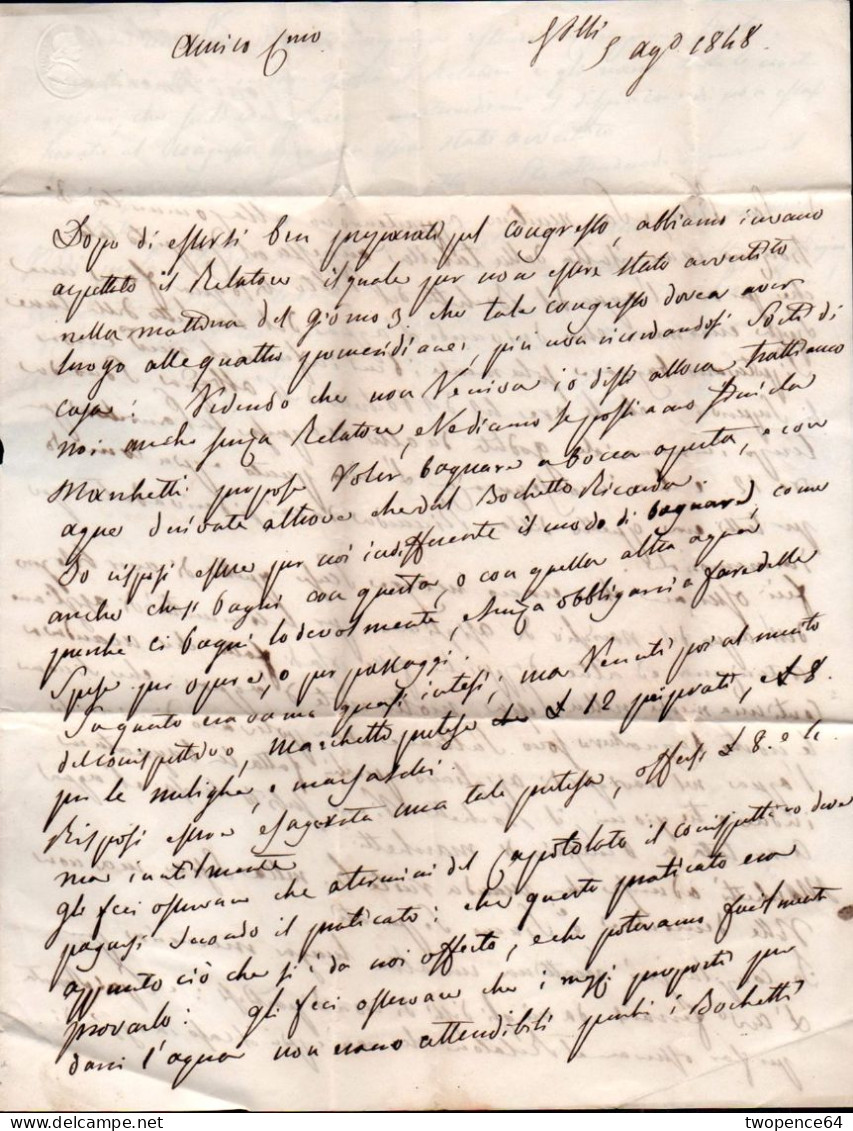 Amico Cmo
5 ago 1848.
Dopo di essersi ben preparati pel congresso, abbiamo invano
aspettato il Relatore il quale per non essere stato avvertito
nella mattina del giorno 3. che tale congresso dovea aver
luogo alle quattro pomeridiane, più non ricordandosi sortì di
casa: Vedendo che non Veniva io dissi allora trattiamo
noi anche senza Relatore, e Vediamo se possiamo
Marchetti propose Voler bagnare a bocca aperta, e con
acque derivate altrove che dal Bochetto Ricarda.
Io risposi essere per noi indifferente il modo di bagnare, come
anche che si bagni con questa, o con quella altra acqua
purchè ci bagni lodevolmente, e senza obbligarci a fare delle
Spese per opere, o per passaggi.
In quanto eravamo quasi intesi; ma Venuti poi al merito
del corrispettivo, Marchetti pretese che £ 12 pei prati, e £ 8.
per le melighe, e marsaschi.
Risposi essere esagerata una tale pretesa, offersi £ 8. e 4.
ma inutilmente
gli feci osservare che a termini del Capitolato il corrispettivo deve
pagarsi secondo il praticato: che questo praticato era
appunto ciò che si è da noi offerto, e che potevamo facilmente
provarlo: gli feci osservare che i mezzi proposti per
darci l'acqua non erano attendibili perchè i Bochetti
twopence64